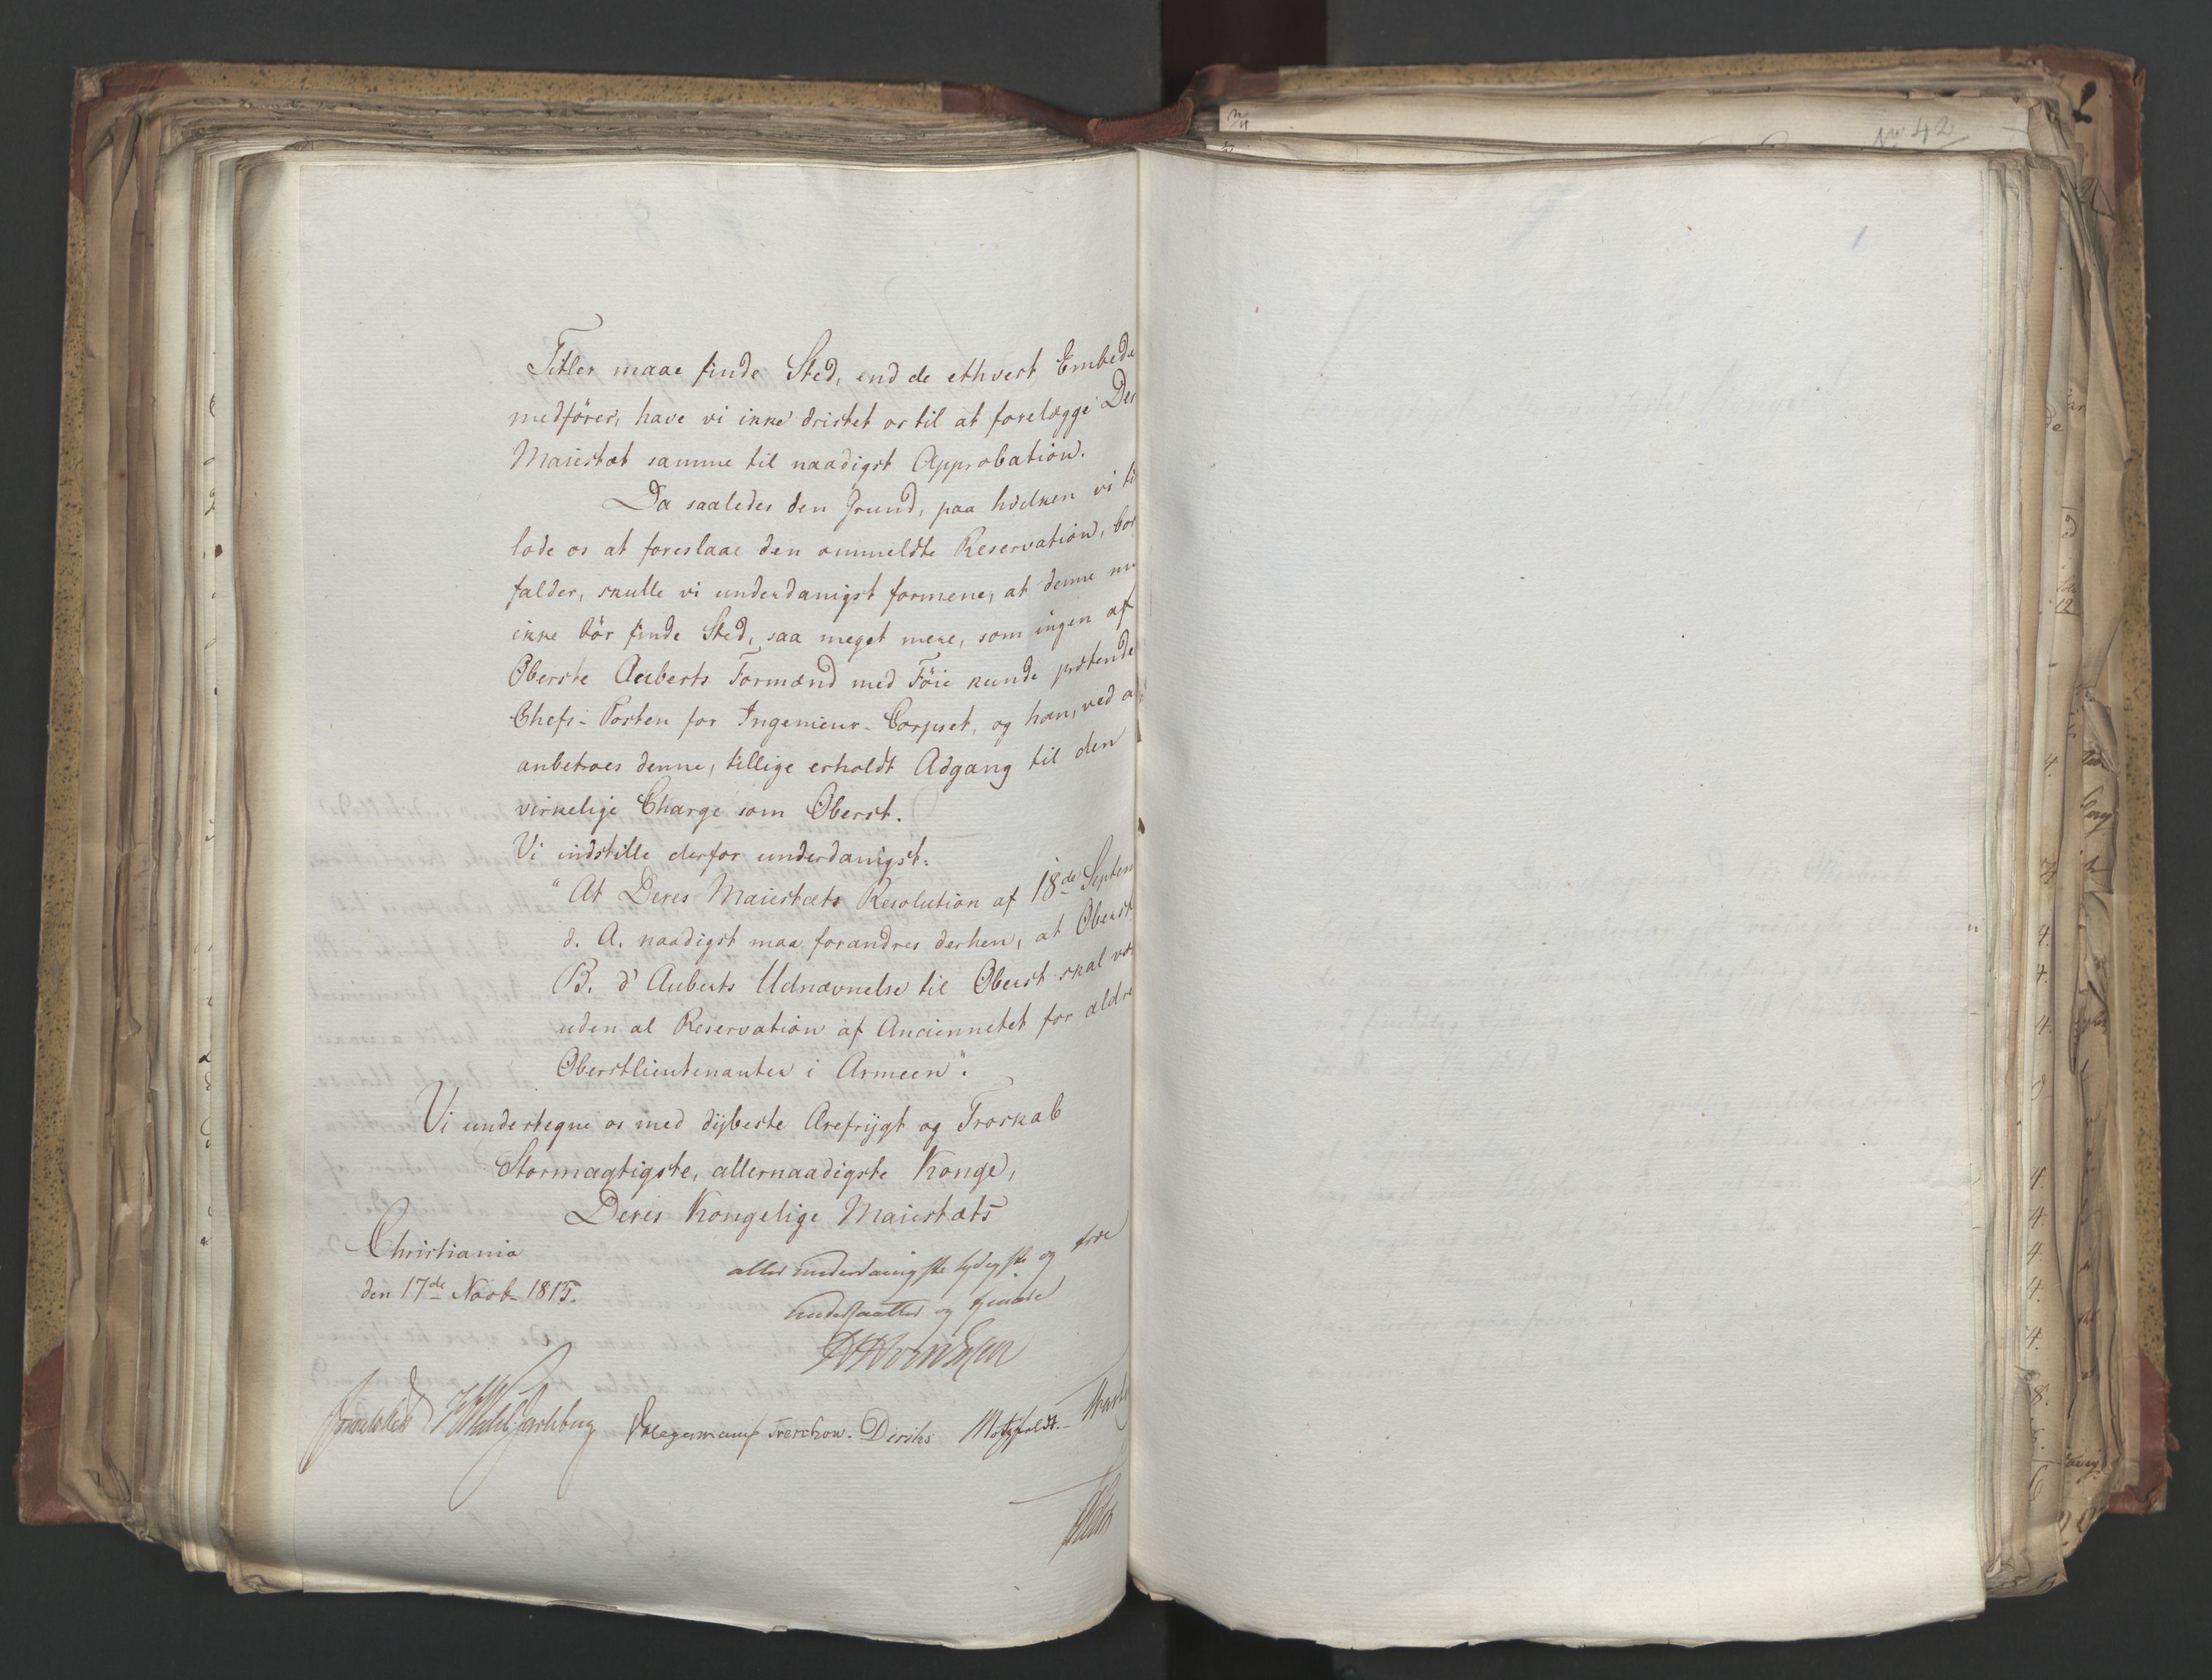 No 42
Titler maae finde Sted, end de ethvert Embede
medförer, have vi ikke dristet os til at forelægge Der
Maiestæt samme til naadigst Approbation.
Da saaledes den Grund, paa hvilken vi til
lode os at foreslaae den ommeldte Reservation, bor
falder, skulle vi underdanigst formene, at denne nu
ikke bör finde Sted, saa meget mere, som ingen af
Oberste Auberts Formænd med Föie kunde prætende
Chefs-Posten for Ingenieur-Corpset, og han, ved a
anbetroes denne, tillige erholdt Adgang til den
virkelige Charge som Oberst.
Vi indstille derfor underdanigst:
"At Deres Maiestæts Resolution af 18de Septem
d. A. naadigst maa forandres derhen, at Oberst
B. d'Auberts Udnævnelse til Oberst skal vær
uden al Reservation af Anciennetet for ældre
Oberstlieutenanter i Armeen".
Vi undertegne os med dÿbeste Ærefrÿgt og Troskab
Stormægtigste, allernaadigste Konge,
Deres Kongelige Maiestæts
Christiania
den 17de Novb. 1815.
allerunderdanigste lydigste og troe
undersaatter og tjenere
Wedel Jarlsberg Hegermann Treschow. Diriks Motzfeldt.